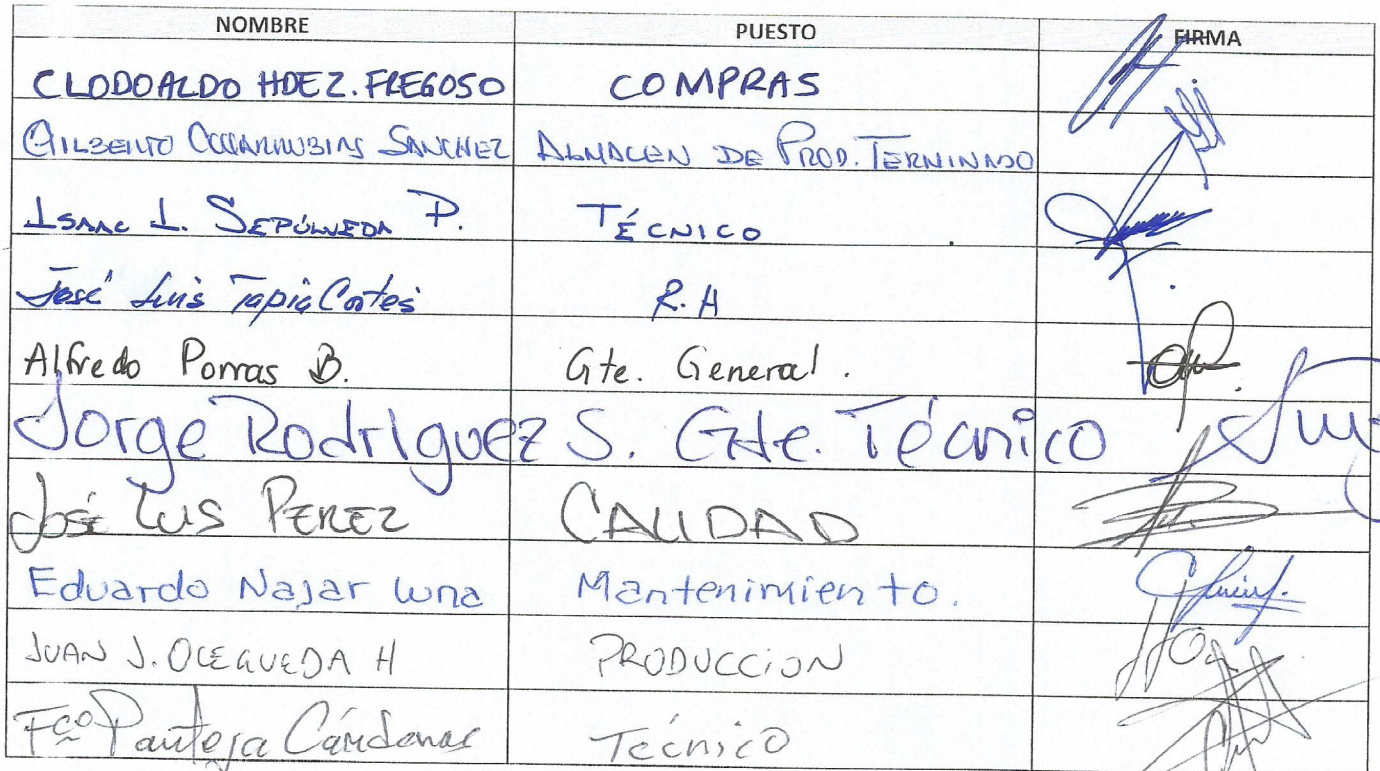 NOMBRE PUESTO FIRMA
CLODOALDO HDEZ. FREGOSO COMPRAS
GILBERTO COVARRUBIAS SANCHEZ ALMACEN DE PROD. TERMINADO
ISAAC L. SEPÚLVEDA P. TÉCNICO
José Luis Tapia Cortes R.H
Alfredo Porras B. Gte. General.
Jorge Rodriguez S. Gte. Técnico
José Luis PEREZ CALIDAD
Eduardo Najar Luna Mantenimiento.
JUAN J. OCEGUEDA H PRODUCCION
Fco Pantoja Cárdenas Técnico